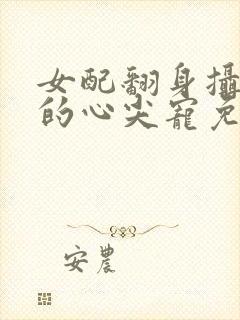 女配翻身攝
的心尖寵免
安農